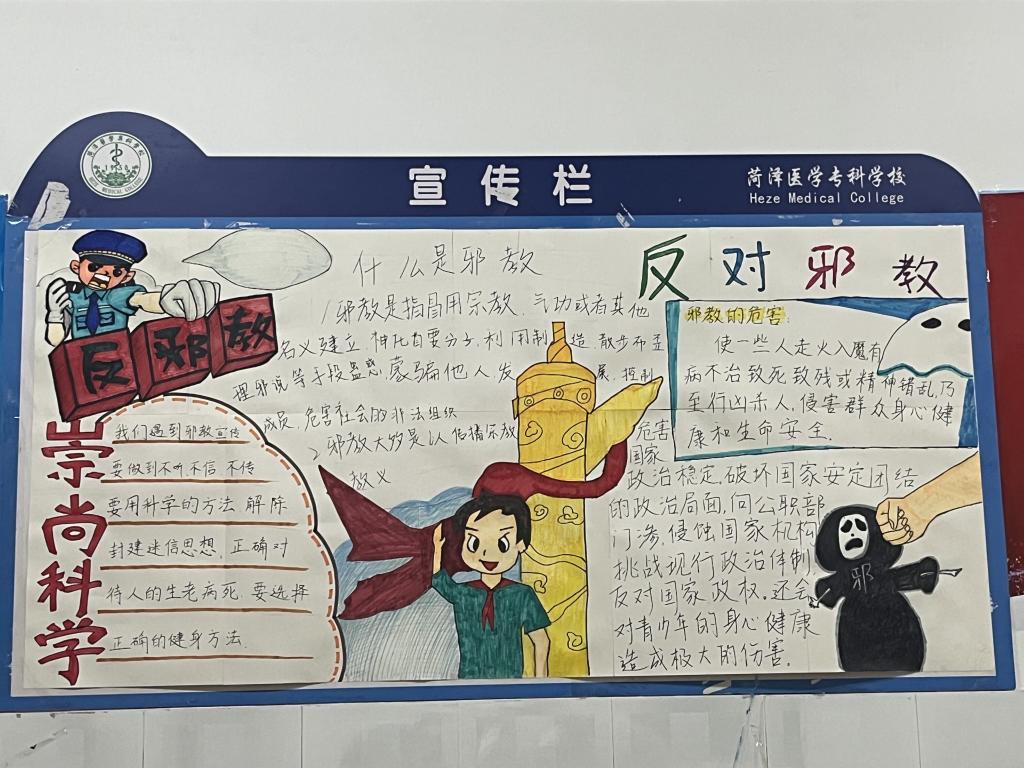 宣传栏
菏泽医学专科学校
Heze Medical College
HEZE MEDICAL COLLEGE
反邪教
崇尚科学
我们遇到邪教宣传
要做到不听不信不传
要用科学的方法解除
封建迷信思想,正确对
待人的生老病死,要选择
正确的健身方法.
什么是邪教
1邪教是指冒用宗教、气功或者其他
名义建立、神化首要分子,利用制造、散步歪
理邪说等手段蛊惑蒙骗他人发展、控制
成员,危害社会的非法组织
2邪教大多是以
教义
反对邪教
邪教的危害:
使一些人走火入魔有
病不治致死致残或精神错乱,乃
至行凶杀人,侵害群众身心健
康和生命安全.
危害
国家
政治稳定,破坏国家安定团结
的政治局面,向公职部
门渗,侵蚀国家机构
挑战现行政治体制、
反对国家政权.还会
对青少年的身心健康
造成极大的伤害.
邪